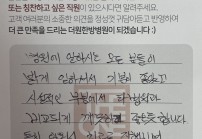 또는 칭찬하고 싶은 직원이 있으시다면 알려주세요.
고객 여러분의 소중한 의견을 정성껏 귀담아듣고 반영하여
더 큰 만족을 드리는 더원한방병원이 되겠습니다 :)
병원에 일하시는 모든 분들이
밝게 일하셔서 기분이 좋았고
시설적인 부분에서 타병원과